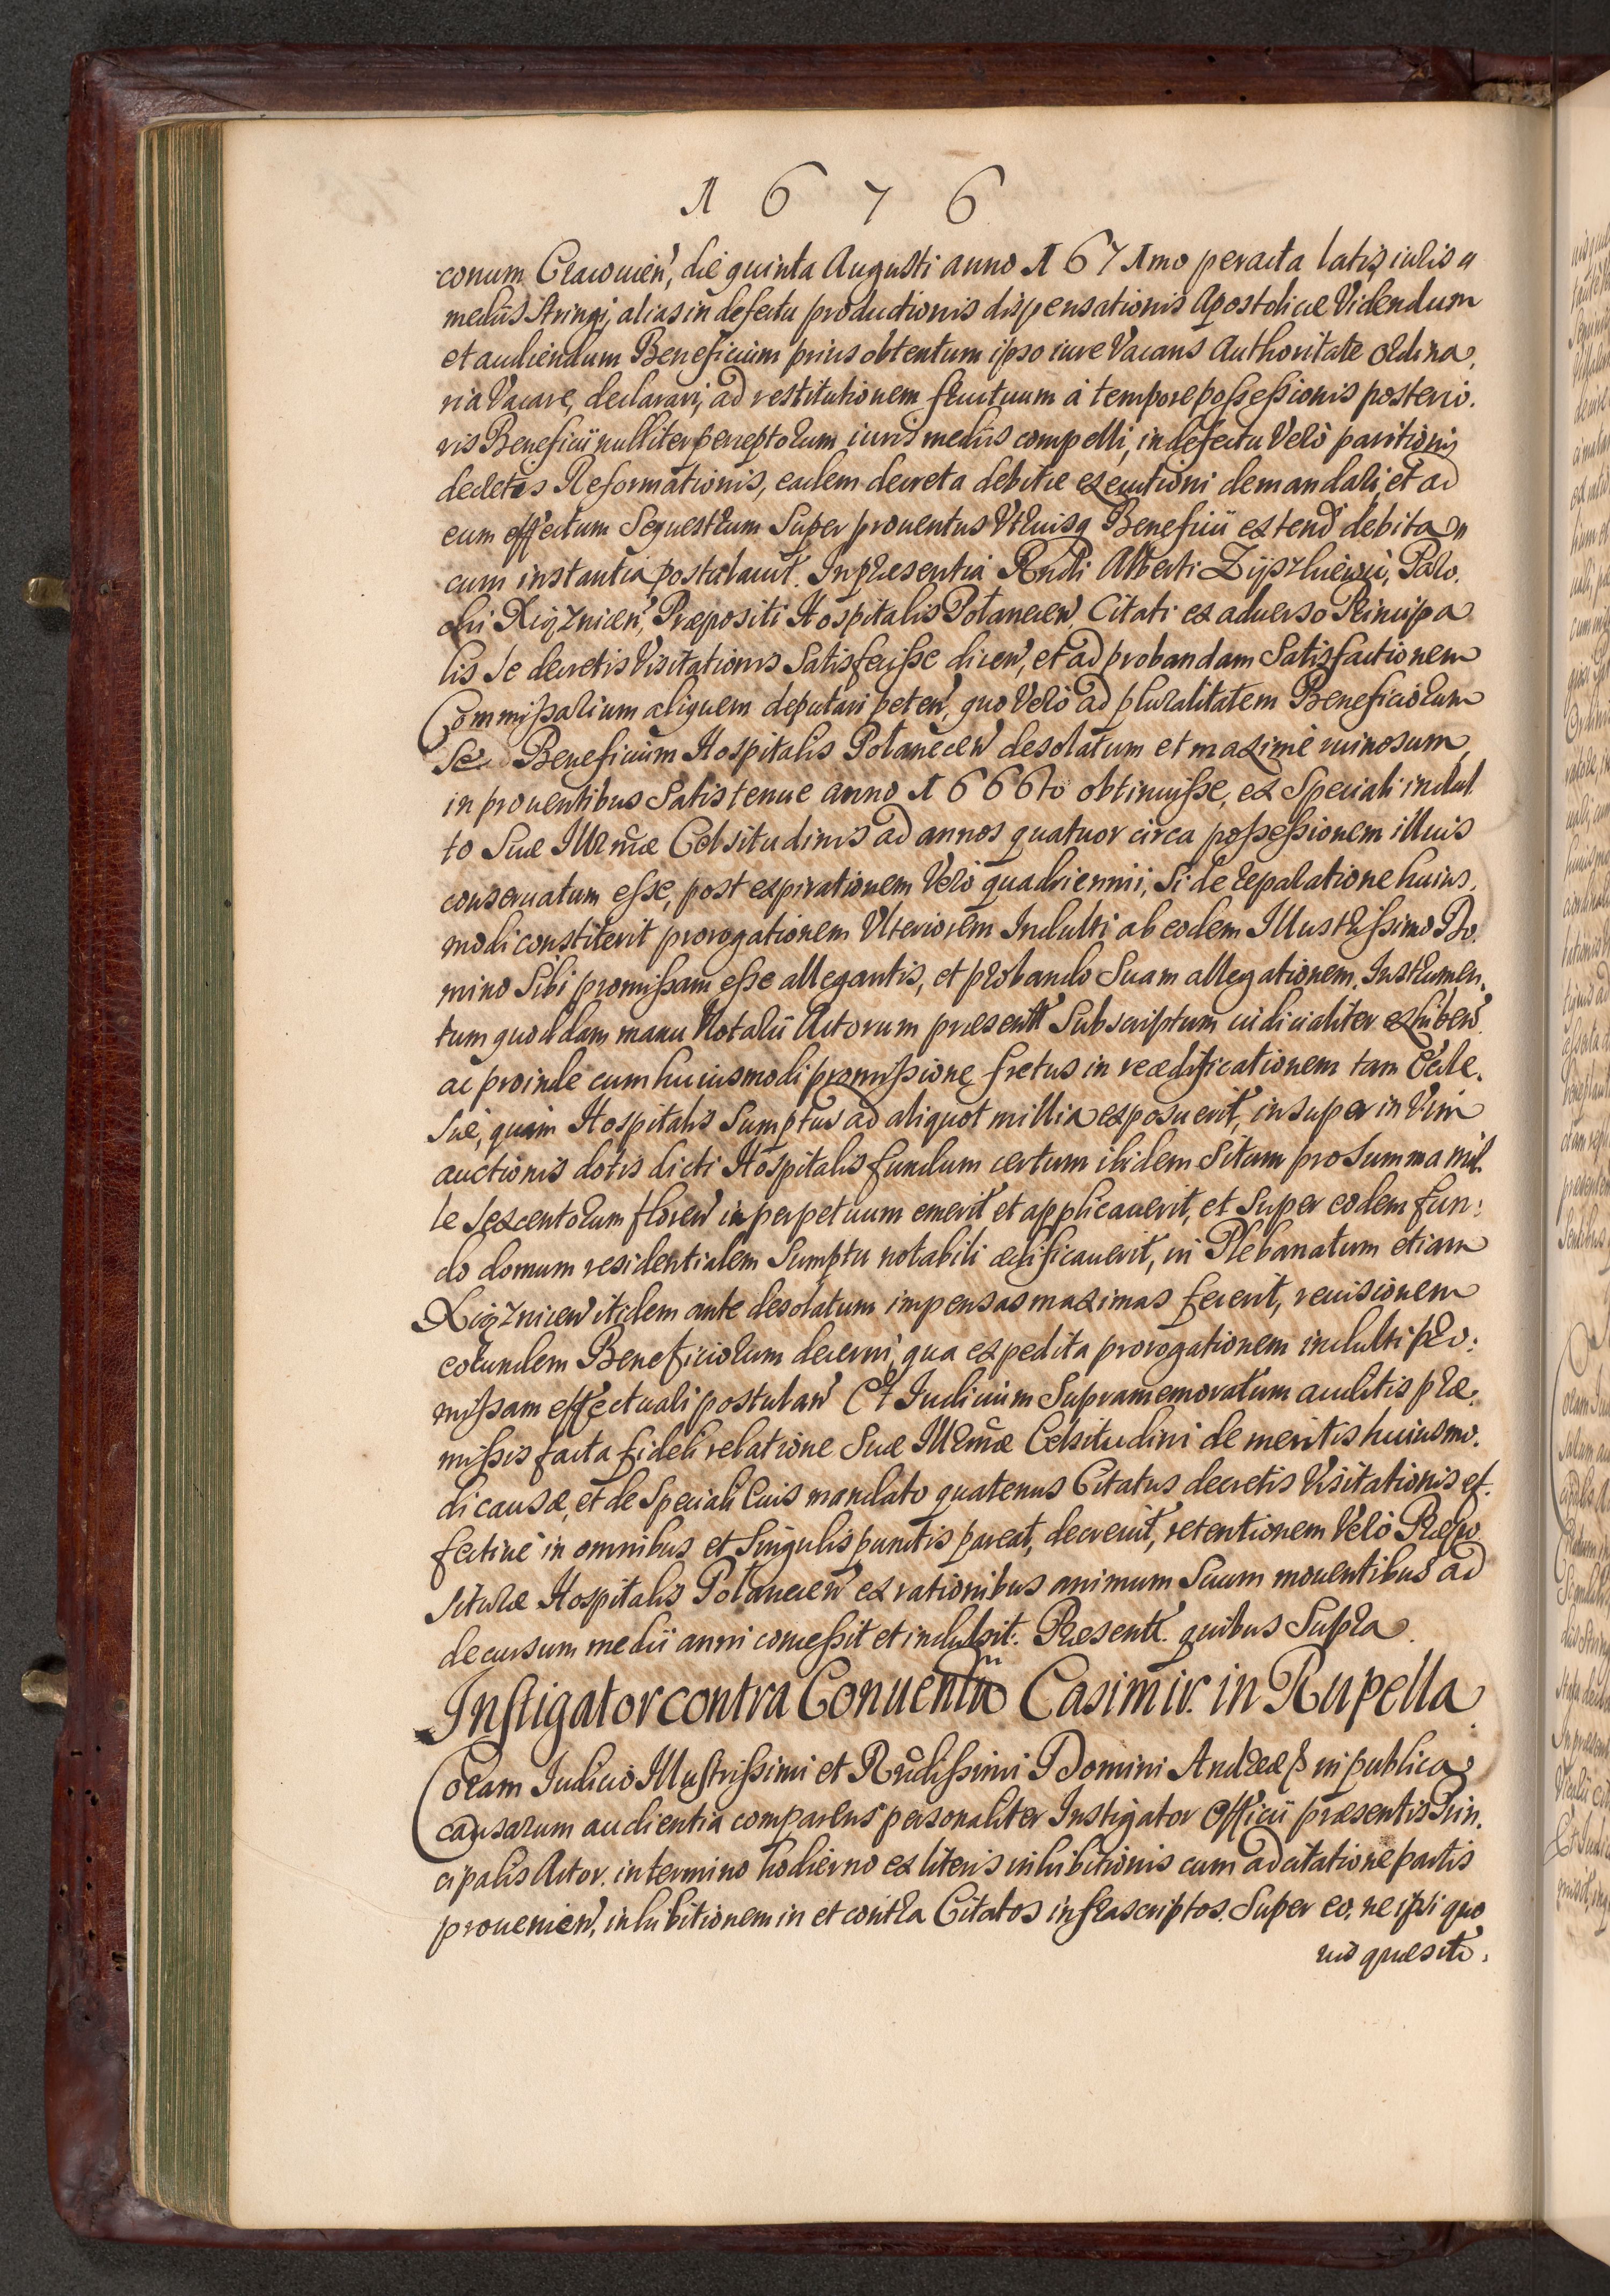 1676
conum Cracouien, die quinta Augusti anno 1671mo peracta latis iuris
mediis stringi, alias in defectu productionis dispensationis Apostolicae Videndum
et audiendum Beneficium prius obtentum ipso iure Vacans Authoritate ordina,
ria Vacare, declarari, ad restitutionem fructuum à tempore possessionis posterio.
ris Beneficii nulliter perceptorum iuris mediis compelli, in defectu Verò paritionis
decretis Reformationis, eadem decreta debitae executioni demandari, et ad
eum effectum Sequestrum Super prouentus Vtriusq Beneficii extend debita
cum instantia postulauit. In praesentia Rndi Alberti Zyszkiewic, Paro.
chi Xiqznicen, Praepositi Hospitalis Polanecen, Citati ex aduerso Principa
lis se decretis Visitationis Satisfecisse dicen, et ad probandam Satisfactionem
Commissarium aliquem deputari peten, quo Verò ad pluralitatem Beneficiorum
Se Beneficium Hospitalis Polanecen desolatum et maximè ruinosum,
in prouentibus Satis tenue anno 1666to obtinuisse, ex Speciali indul
to Suae Illrmae Celsitudinis ad annos quatuor circa possessionem illius
conseruatum esse, post expirationem Verò quadriennii, Si de reparatione huius.
modi constiterit prorogationem Vlteriorem Indulti ab eodem Illustrissimo Do.
mino Sibi promissam esse allegantis, et probando Suam allegationem, Instrumen.
tum quoddam manu Notarii Actorum praesentt Subscriptum iudicialiter exhiben
ac proinde cum huiusmodi promissione fretus in reaedificationem tam Eccle.
siae, quàm Hospitalis Sumptus ad aliquot millia exposuerit, insuper in Vim
auctionis dotis dicti Hospitalis fundum certum ibidem Situm pro Summa mil.
le sexcentorum floren in perpetuum emerit et applicauerit, et Super eodem fun:
do domum residentialem Sumptu notabili aedificauerit, in Plebanatum etiam
Xiqznicen itidem ante desolatum impensas maximas fecerit, reuisionem
eorundem Beneficiorum decerni, qua expedita prorogationem indulti pro:
missam effectuali postulan Et Iudicium Supramemoratum auditis prae:
missis facta fideli relatione Suae Illrmae Celsitudini de meritis huiusmo.
di causae, et de Speciali Cuis mandato quatenus Citatus decretis Visitationis ef.
fectiuè in omnibus et Singulis punctis pareat, decreuit, retentionem Verò Praepo
siturae Hospitalis Polanecen ex rationibus animum Suum mouentibus ad
decursum medii anni concessit et indulsit. Praesentt. quibus Supra.
Instigator contra Conuentum Casimir. in Rupella
Coram Iudicio Illustrissimi et Rndissimi Domini Andreae in publica
causarum audientia comparens personaliter Instigator Officii praesentis Prin.
cipalis Actor. in termino hodierno ex literis inhibitionis cum adcitatione partis
prouenien, inhibitionem in et contra Citatos infrascriptos. Super eo, ne ipsi quo
uis quaesito.